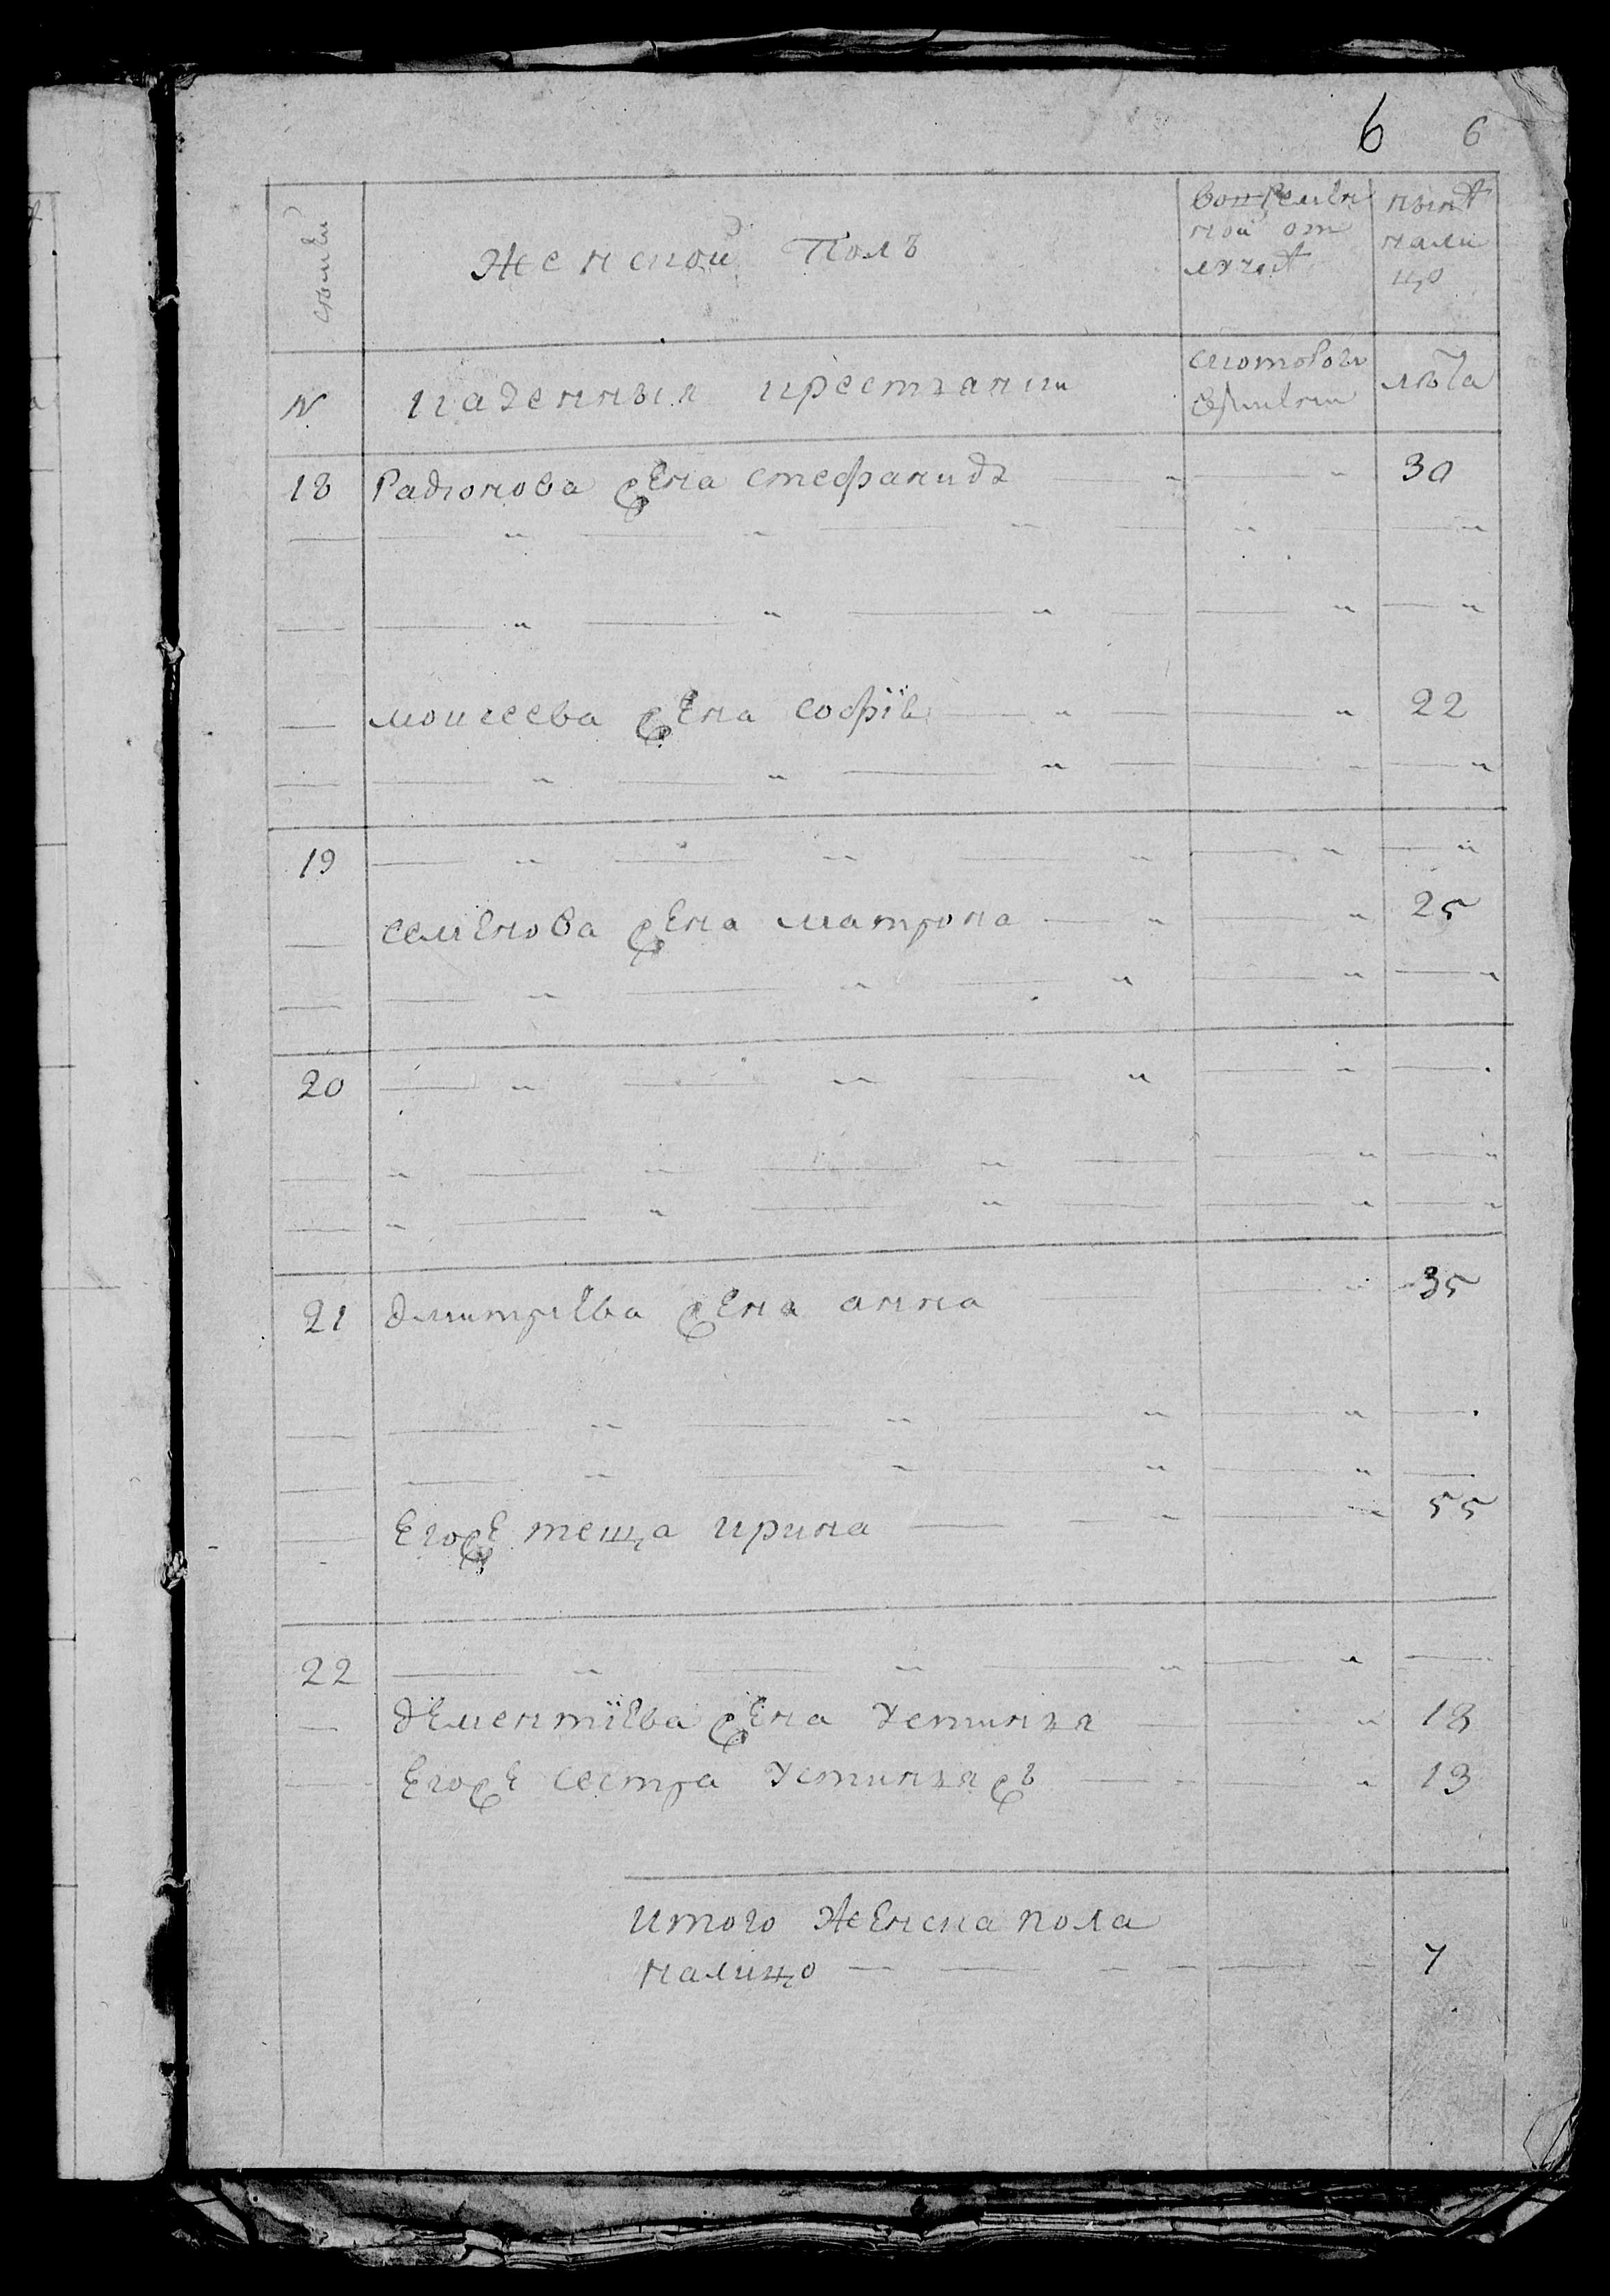 6 6
семьи
Женской Полъ
вовремен
ной от
лучкѣ
нынѣ
нали
цо
№
казенныя крестьянки
скоторого
времени
лѣта
18 Радионова жена стефанида 30
моисеева жена софїя 22
19
семенова жена матрона 25
20
21 дмитриева жена анна 35
Егоже теща ирина 55
22
дементїева жена устинья 18
Егоже сестра устиньяжъ 13
итого Женска пола
налицо 7